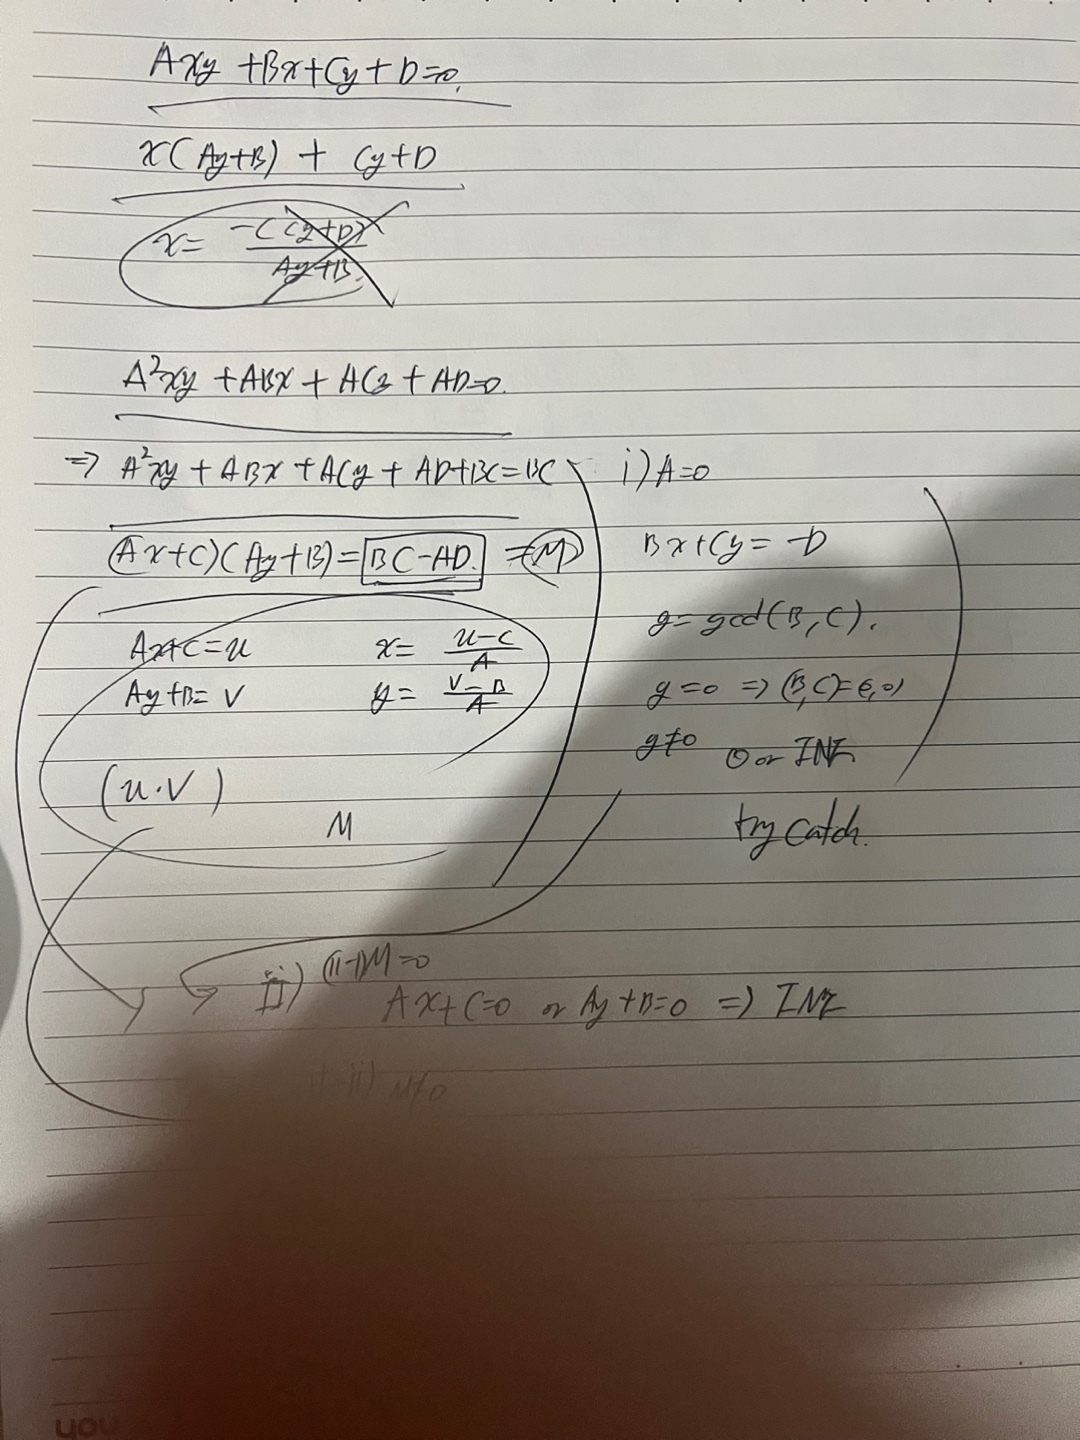 Axy + Bx + Cy + D = 0.
x(Ay+B) + Cy+D
x = -(Cy+D) / Ay+B
A²xy + ABx + ACy + AD=0.
⇒ A²xy + ABx + ACy + AD+BC = BC
(Ax+C)(Ay+B) = BC-AD. = M
Ax+C = u x = u-C / A
Ay+B = v y = v-B / A
(u.v)
M
i) A=0
Bx+Cy = -D
g = gcd(B, C).
g=0 ⇒ (B,C)=(0,0)
g≠0 0 or INF
try catch.
ii) (ii-i) M=0
Ax+C=0 or Ay+B=0 ⇒ INF
ii-ii) M≠0
you